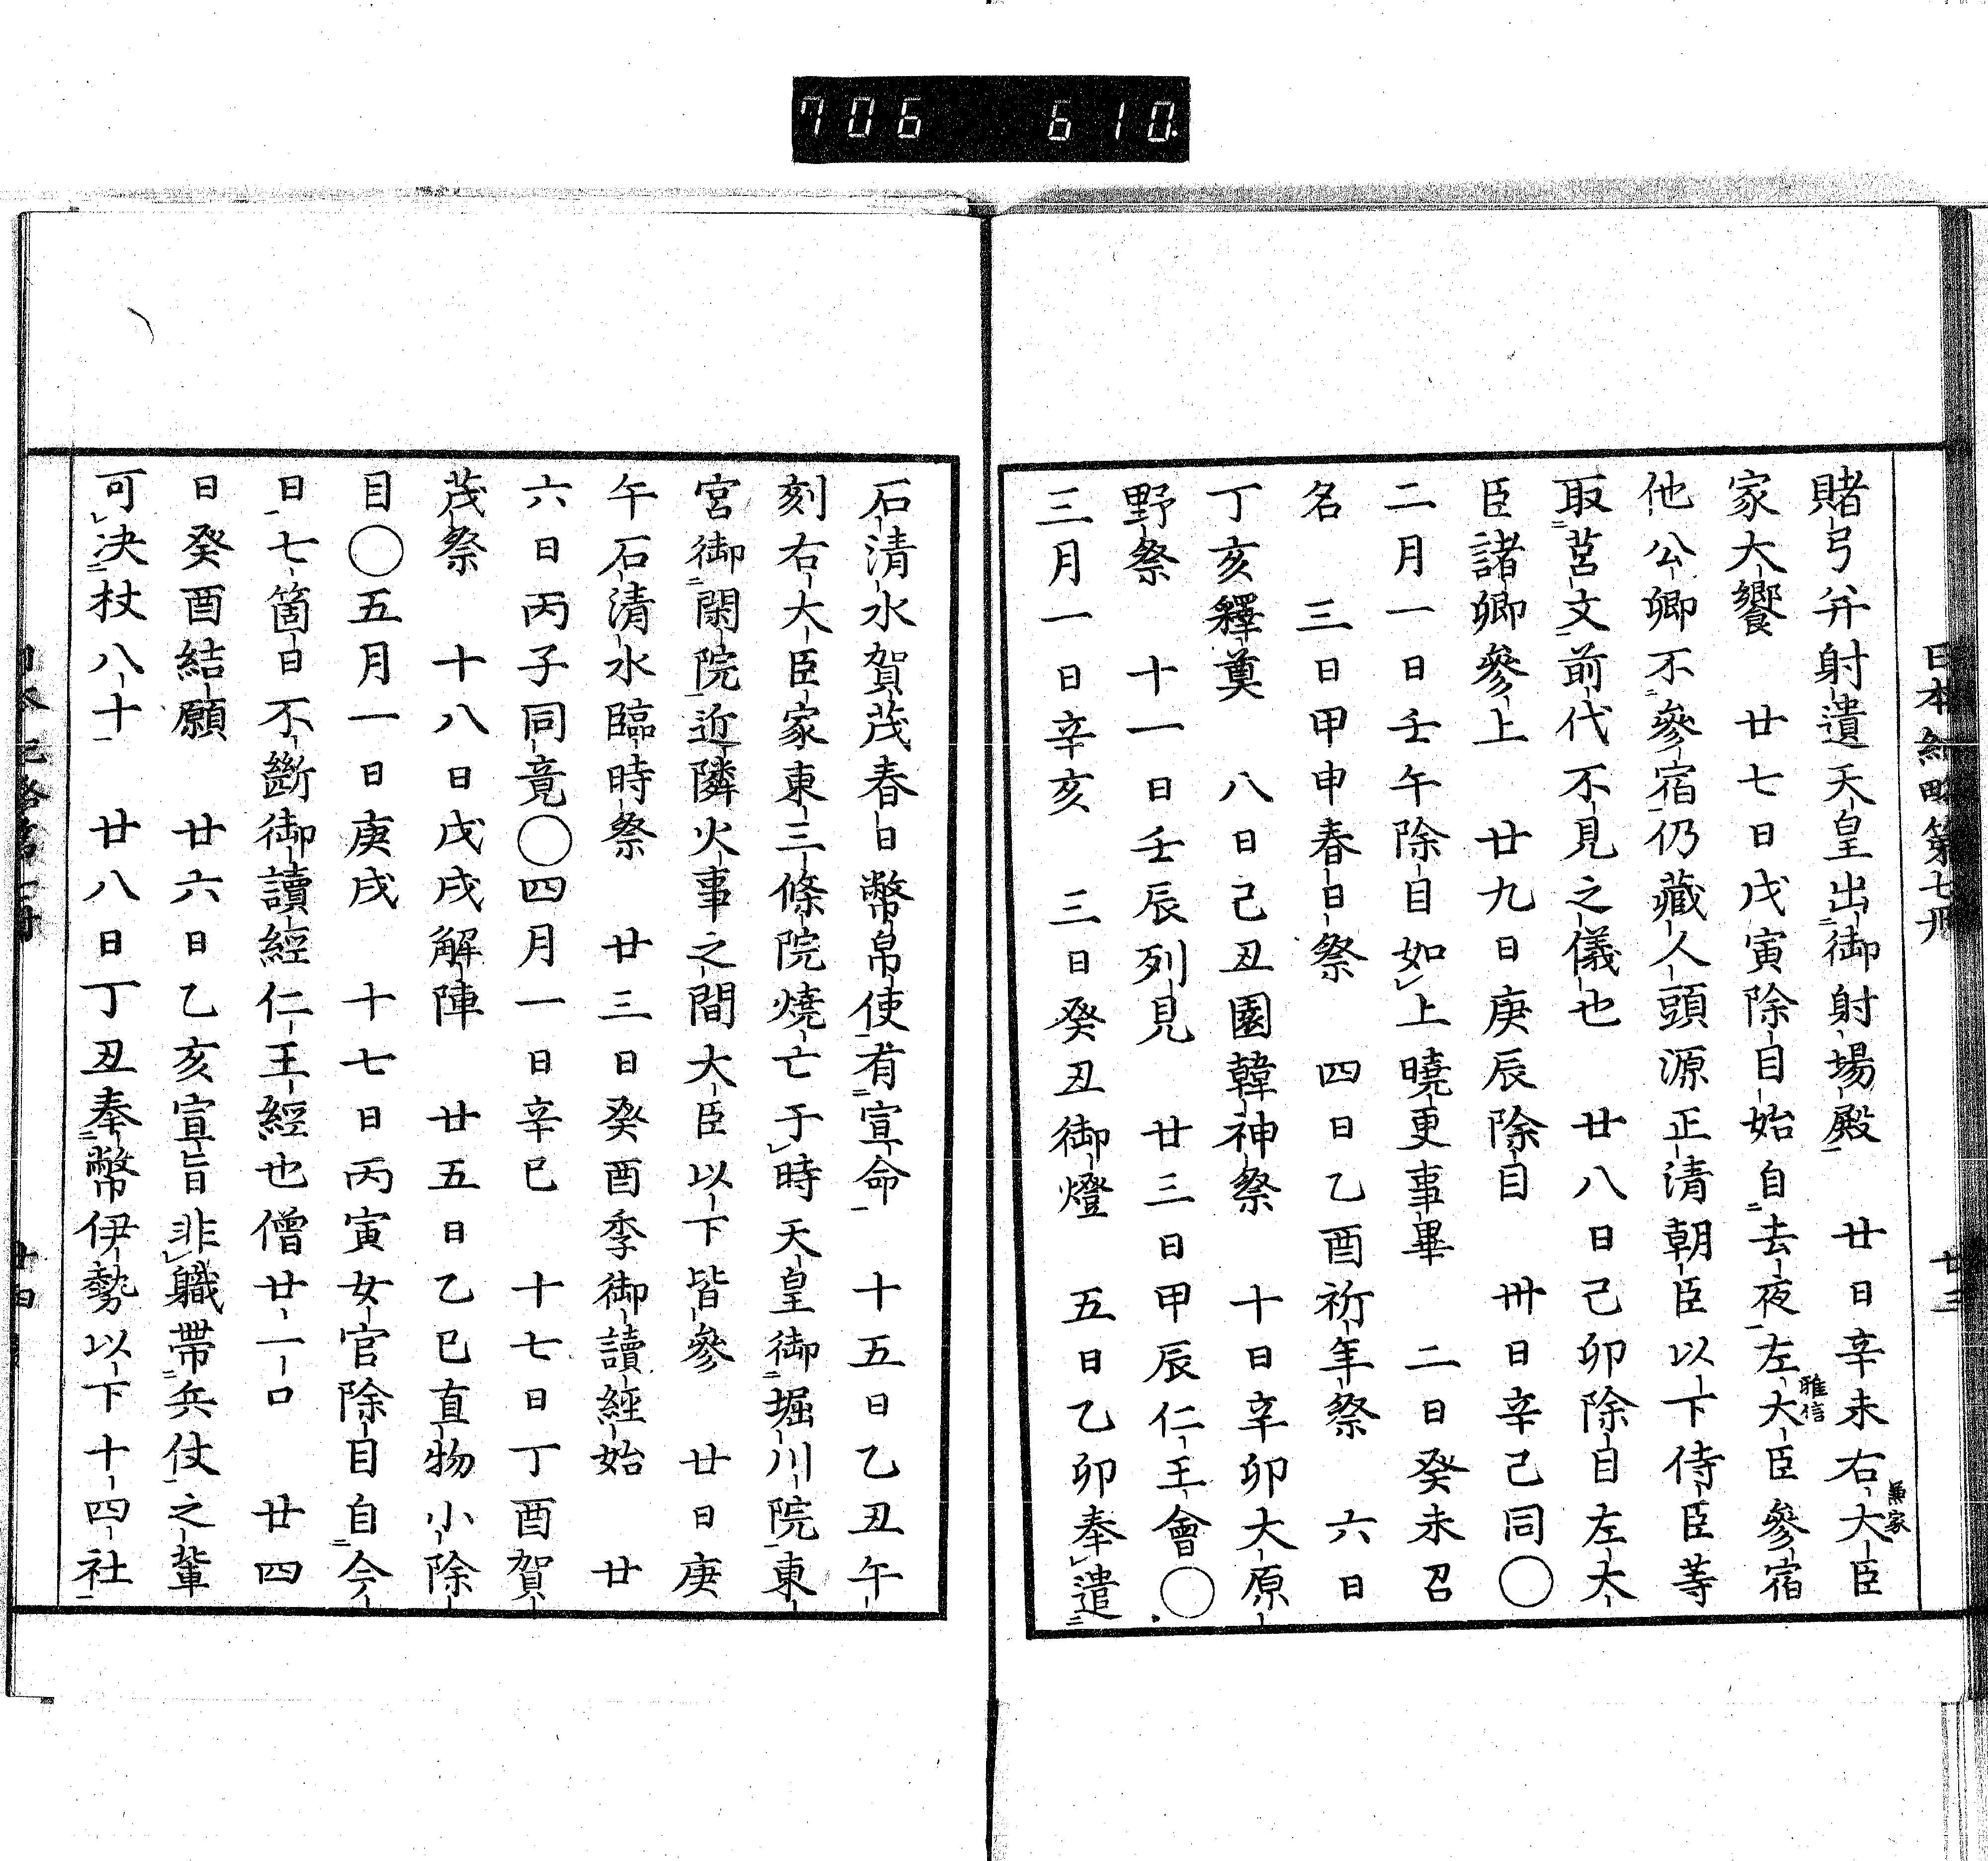 706 610
日本紀略第七册
廿三
賭弓并射遺天皇出御射場殿　廿日辛未右大臣兼家
家大饗　廿七日戊寅除目始自去夜左大臣雅信參宿
他公卿不參宿仍藏人頭源正清朝臣以下侍臣等
取莒文前代不見之儀也　廿八日己卯除目左大
臣諸卿參上　廿九日庚辰除目　卅日辛己同〇
二月一日壬午除目如上曉更事畢　二日癸未召
名　三日甲申春日祭　四日乙酉祈年祭　六日
丁亥釋奠　八日己丑園韓神祭　十日辛卯大原
野祭　十一日壬辰列見　廿三日甲辰仁王會〇
三月一日辛亥　三日癸丑御燈　五日乙卯奉遣
石清水賀茂春日幣帛使有宣命　十五日乙丑午
刻右大臣家東三條院燒亡于時天皇御堀川院東
宮御閑院近隣火事之間大臣以下皆參　廿日庚
午石清水臨時祭　廿三日癸酉季御讀經始　廿
六日丙子同竟〇四月一日辛巳　十七日丁酉賀
茂祭　十八日戊戌解陣　廿五日乙巳直物小除
目〇五月一日庚戌　十七日丙寅女官除目自今
日七箇日不斷御讀經仁王經也僧廿一口　廿四
日癸酉結願　廿六日乙亥宣旨非職帶兵仗之輩
可決杖八十　廿八日丁丑奉幣伊勢以下十四社